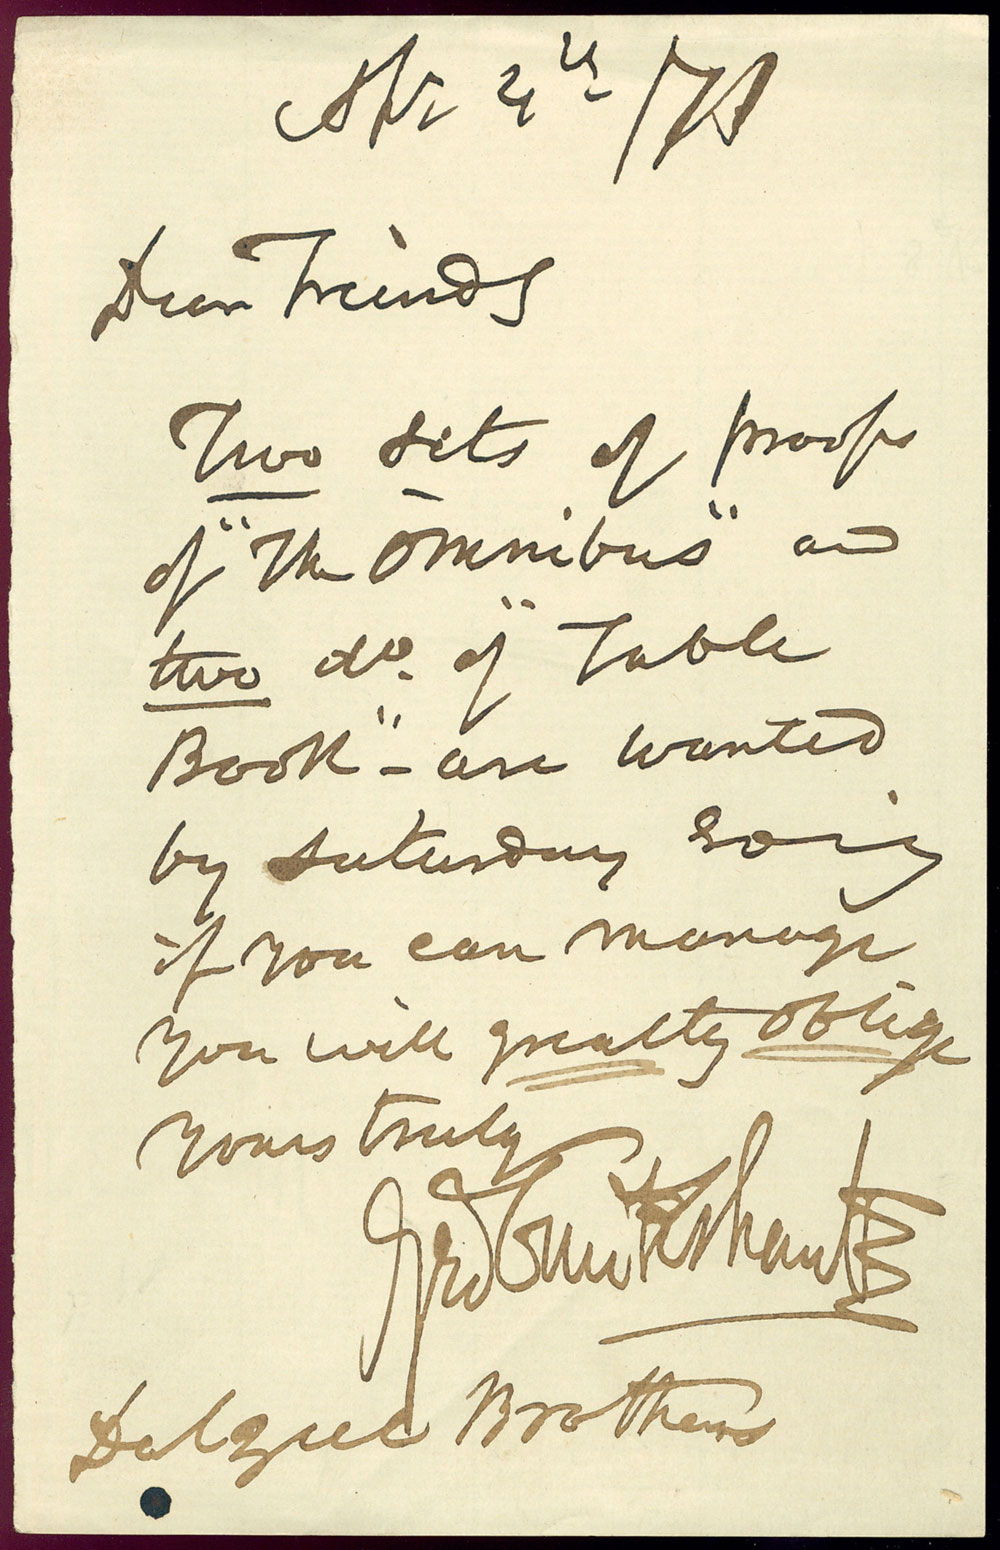 Apr 4th /71
Dear Friends
Two sets of proofs
of "The Omnibus" and
two do. of "Table
Book" - are wanted
by Saturday
if you can manage
you will greatly oblige
Yours truly
Geo Cruikshank
Dalziel Brothers